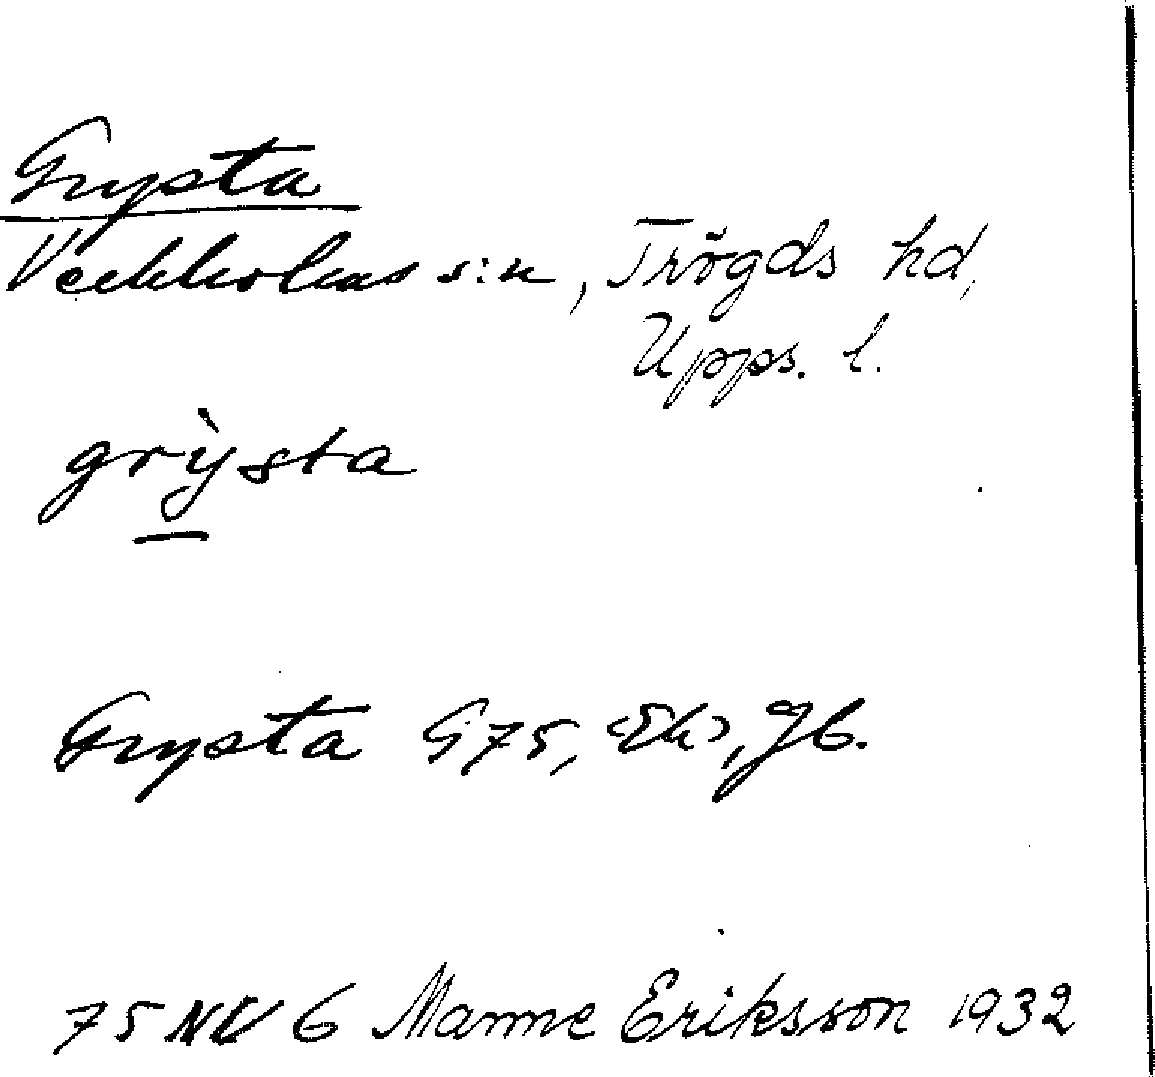 Grysta
Veckholms s:n, Trögds hd,
Upps. l.
grỳsta
Grysta G75, <Ek>, Jb.
75 NV 6 Manne Eriksson 1932